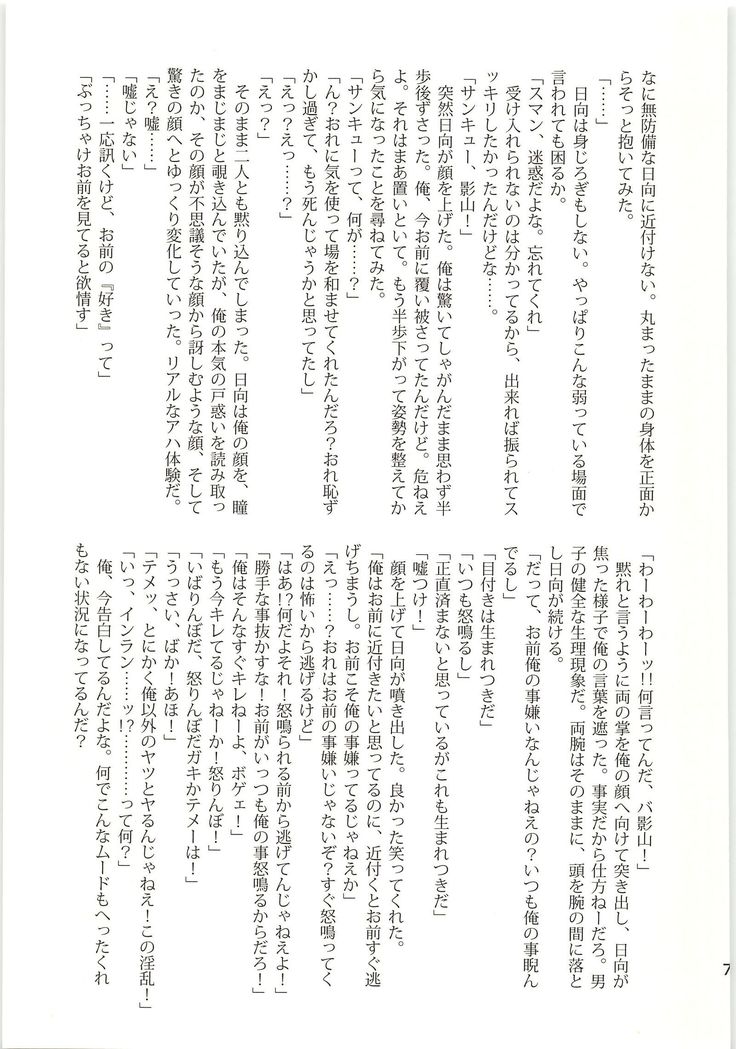 なに無防備な日向に近付けない。丸まったままの身体を正面か
らそっと抱いてみた。
「……」
日向は身じろぎもしない。やっぱりこんな弱っている場面で
言われても困るか。
「スマン、迷惑だよな。忘れてくれ」
受け入れられないのは分かってるから、出来れば振られてス
ッキリしたかったんだけどな……。
「サンキュー、影山！」
突然日向が顔を上げた。俺は驚いてしゃがんだまま思わず半
歩後ずさった。俺、今お前に覆い被さってたんだけど。危ねえ
よ。それはまあ置いといて。もう半歩下がって姿勢を整えてか
ら気になったことを尋ねてみた。
「サンキューって、何が……？」
「ん？おれに気を使って場を和ませてくれたんだろ？おれ恥ず
かし過ぎて、もう死んじゃうかと思ってたし」
「えっ？えっ……？」
「えっ？」
そのまま二人とも黙り込んでしまった。日向は俺の顔を、瞳
をまじまじと覗き込んでいたが、俺の本気の戸惑いを読み取っ
たのか、その顔が不思議そうな顔から訝しむような顔、そして
驚きの顔へとゆっくり変化していった。リアルなアハ体験だ。
「え？嘘……」
「嘘じゃない」
「……一応訊くけど、お前の『好き』って」
「ぶっちゃけお前を見てると欲情す」
「わーわーわーッ!!何言ってんだ、バ影山！」
黙れと言うように両の掌を俺の顔へ向けて突き出し、日向が
焦った様子で俺の言葉を遮った。事実だから仕方ねーだろ。男
子の健全な生理現象だ。両腕はそのままに、頭を腕の間に落と
し日向が続ける。
「だって、お前俺の事嫌いなんじゃねえの？いつも俺の事睨ん
でるし」
「目付きは生まれつきだ」
「いつも怒鳴るし」
「正直済まないと思っているがこれも生まれつきだ」
「嘘つけ！」
顔を上げて日向が噴き出した。良かった笑ってくれた。
「俺はお前に近付きたいと思ってるのに、近付くとお前すぐ逃
げちまうし。お前こそ俺の事嫌ってるじゃねえか」
「えっ……？おれはお前の事嫌いじゃないぞ？すぐ怒鳴ってく
るのは怖いから逃げるけど」
「はあ!?何だよそれ！怒鳴られる前から逃げてんじゃねえよ！」
「勝手な事抜かすな！お前がいっつも俺の事怒鳴るからだろ！」
「俺はそんなすぐキレねーよ、ボゲェ！」
「もう今キレてるじゃねーか！怒りんぼ！」
「いばりんぼだ、怒りんぼだガキかテメーは！」
「うっさい、ばか！あほ！」
「テメッ、とにかく俺以外のヤツとヤるんじゃねえ！この淫乱！」
「いっ、インラン……ッ!?…………って何？」
俺、今告白してるんだよな。何でこんなムードもへったくれ
もない状況になってるんだ？
7